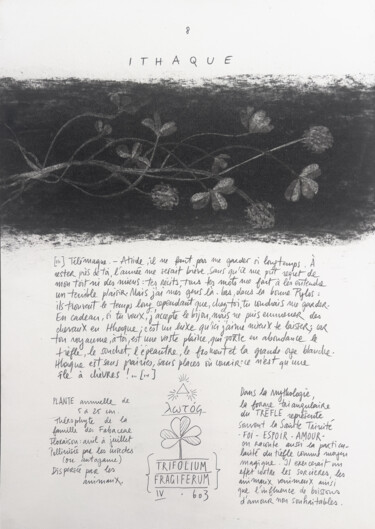 8
ITHAQUE
[...] Télémaque. - Atride, il ne faut pas me garder si longtemps. À
rester près de toi, l'année me serait brève, sans qu'il me prît regret de
mon toit ni des miens: tes récits, tous tes mots me font à les entendre
un terrible plaisir. Mais j'ai mes gens là-bas, dans la bonne Pylos:
ils trouvent le temps long, cependant que, chez toi, tu voudrais me garder.
En cadeau, si tu veux, j'accepte le bijou, mais ne puis emmener des
chevaux en Ithaque; c'est un luxe qu'ici j'aime mieux te laisser; car
ton royaume, à toi, est une vaste plaine, qui porte en abondance le
trèfle, le souchet, l'épeautre, le froment et la grande orge blanche.
Ithaque est sans prairies, sans places où courir: ce n'est qu'une
île à chèvres! .. [...]
PLANTE annuelle de
5 à 25 cm
de la
famille des Fabaceae
Floraison: avril à juillet
Pollinisée par les insectes
(ou autogame)
Dispersée par les
animaux.
λωτός
TRIFOLIUM
FRAGIFERUM
IV 603
Dans la mythologie,
la forme triangulaire
du TRÈFLE représente
suivant la Sainte Trinité
-FOI-ESPOIR-AMOUR-
on raconte aussi la particu-
larité du trèfle comme
magique. Il exercerait un
effet contre les sorcières, les
animaux venimeux ainsi
que l'influence de boissons
d'amour non souhaitables.